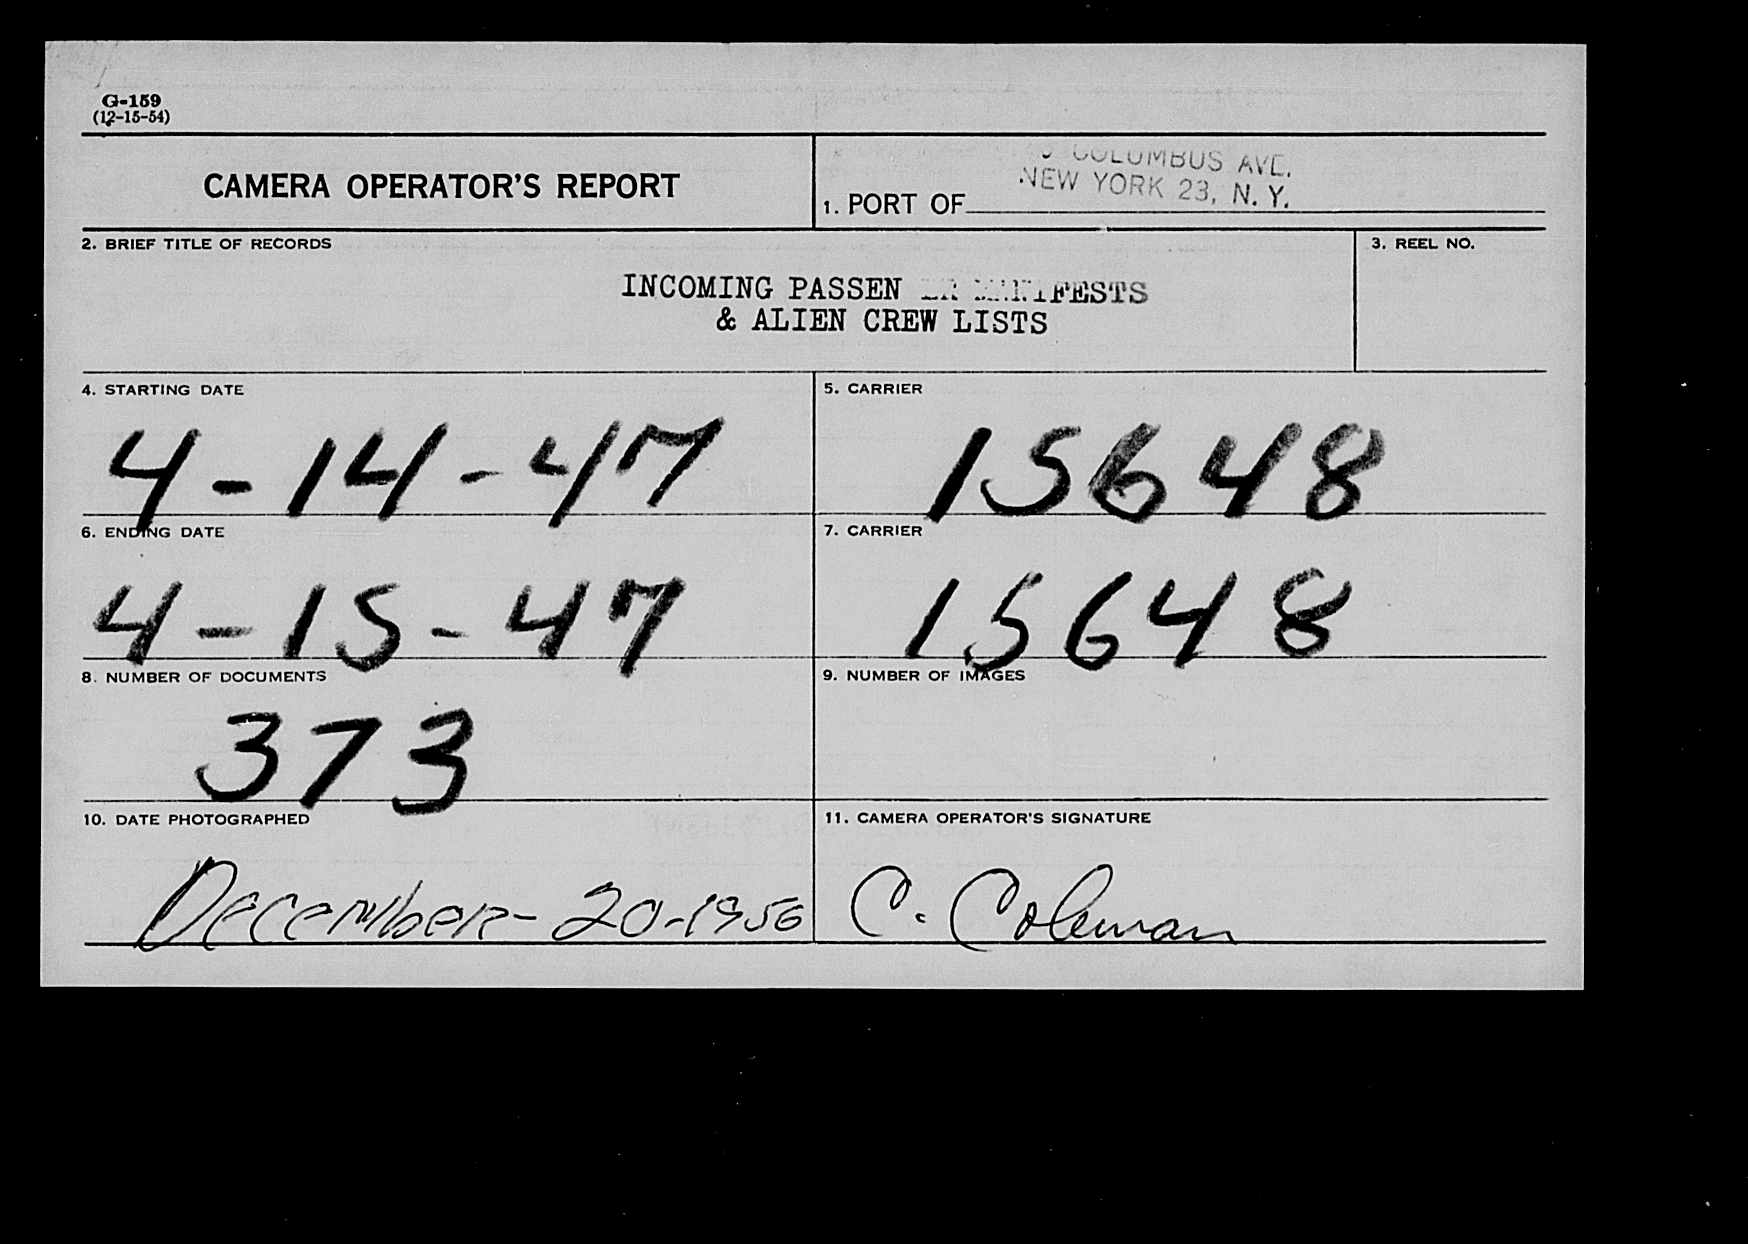 G-159
(12-15-54)
CAMERA OPERATOR'S REPORT
COLUMBUS AVE.
NEW YORK 23, N. Y.
1. PORT OF
2. BRIEF TITLE OF RECORDS
3. REEL NO.
INCOMING PASSEN MANIFESTS
& ALIEN CREW LISTS
4. STARTING DATE
5. CARRIER
4-14-47
15648
6. ENDING DATE
7. CARRIER
4-15-47
15648
8. NUMBER OF DOCUMENTS
9. NUMBER OF IMAGES
373
10. DATE PHOTOGRAPHED
11. CAMERA OPERATOR'S SIGNATURE
December-20-1956
C. Coleman